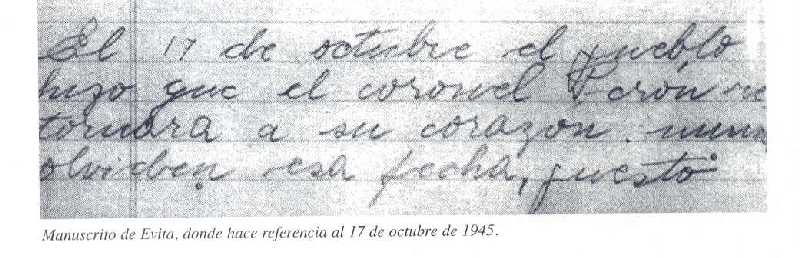 El 17 de octubre el pueblo
hizo que el coronel Perón re
tornara a su corazon. nunca
olviden esa fecha, puesto
Manuscrito de Evita, donde hace referencia al 17 de octubre de 1945.